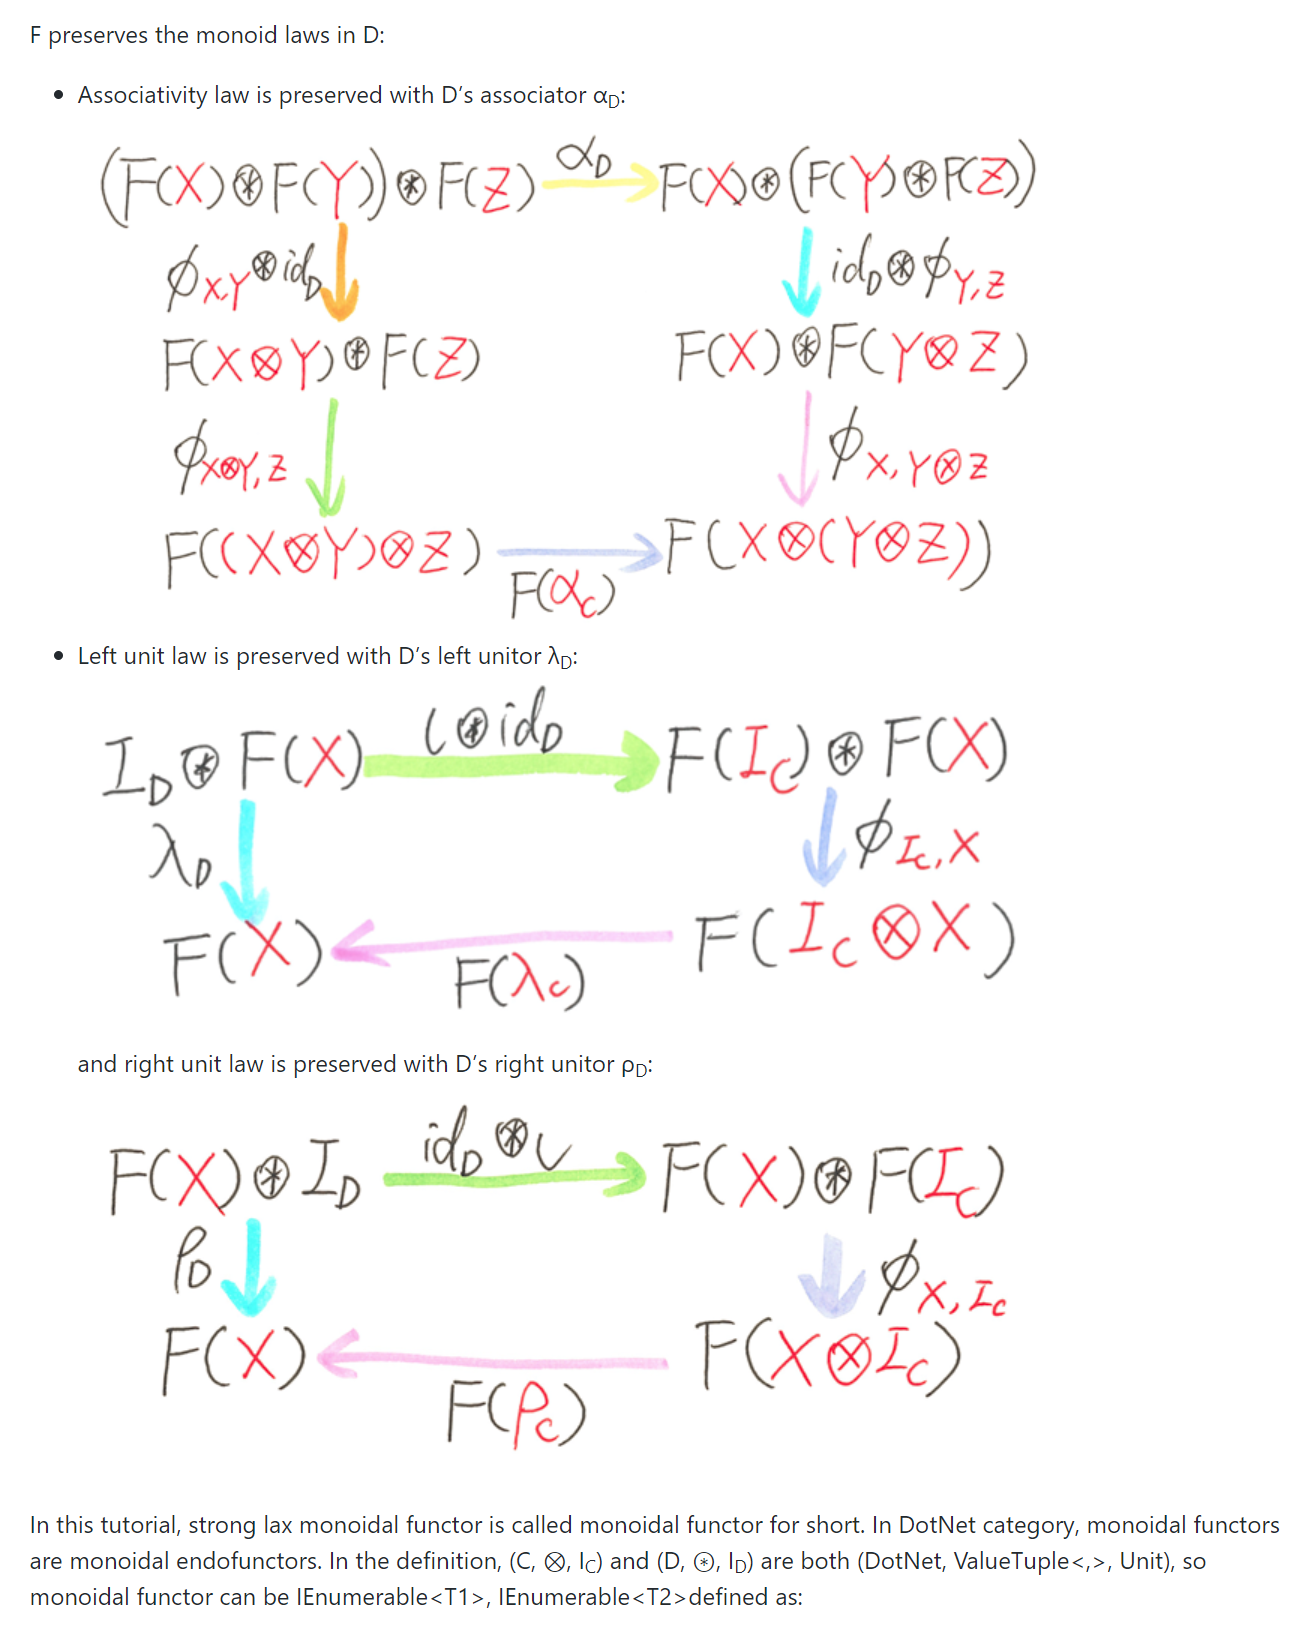 F preserves the monoid laws in D:
• Associativity law is preserved with D’s associator αD:
(F(X)⊛F(Y))⊛F(Z) αD F(X)⊛(F(Y)⊛F(Z))
ϕX,Y⊛idD idD⊛ϕY,Z
F(X⊗Y)⊛F(Z) F(X)⊛F(Y⊗Z)
ϕX⊗Y,Z ϕX,Y⊗Z
F((X⊗Y)⊗Z) F(X⊗(Y⊗Z))
F(αC)
• Left unit law is preserved with D’s left unitor λD:
ι⊛idD
ID⊛F(X) F(IC)⊛F(X)
λD ϕIC,X
F(X) F(IC⊗X)
F(λC)
and right unit law is preserved with D’s right unitor ρD:
idD⊛ι
F(X)⊛ID F(X)⊛F(IC)
ρD ϕX,IC
F(X) F(X⊗IC)
F(ρC)
In this tutorial, strong lax monoidal functor is called monoidal functor for short. In DotNet category, monoidal functors
are monoidal endofunctors. In the definition, (C, ⊗, IC) and (D, ⊛, ID) are both (DotNet, ValueTuple<,>, Unit), so
monoidal functor can be IEnumerable<T1>, IEnumerable<T2>defined as: